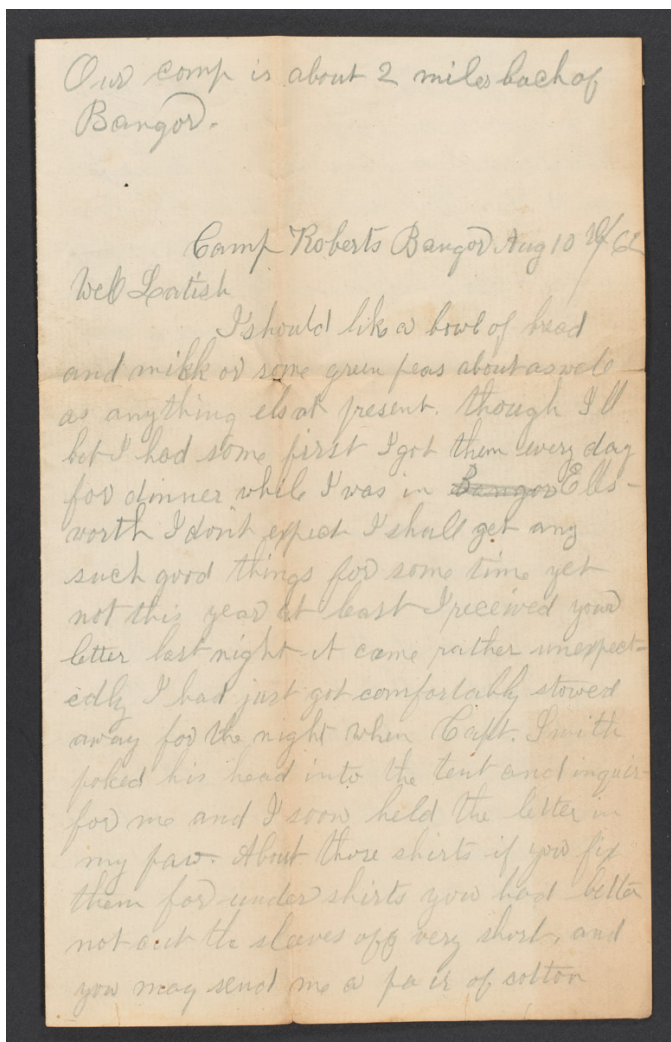 Our camp is about 2 miles back of
Bangor.
Camp Roberts Bangor Aug 10th/62
Well Latish
I should like a bowl of bread
and milk or some green peas about as well
as anything els at present. though I'll
bet I had some first I got them every day
for dinner while I was in Bangor Ells-
worth I dont expect I shall get any
such good things for some time yet
not this year at least I received your
letter last night it came rather unexpect-
edly I had just got comfortably stowed
away for the night when Capt. Smith
poked his head into the tent and inquir-
for me and I soon held the letter in
my paw. About those shirts if you fix
them for under shirts you had better
not cut the sleeves off very short, and
you may send me a pair of cotton